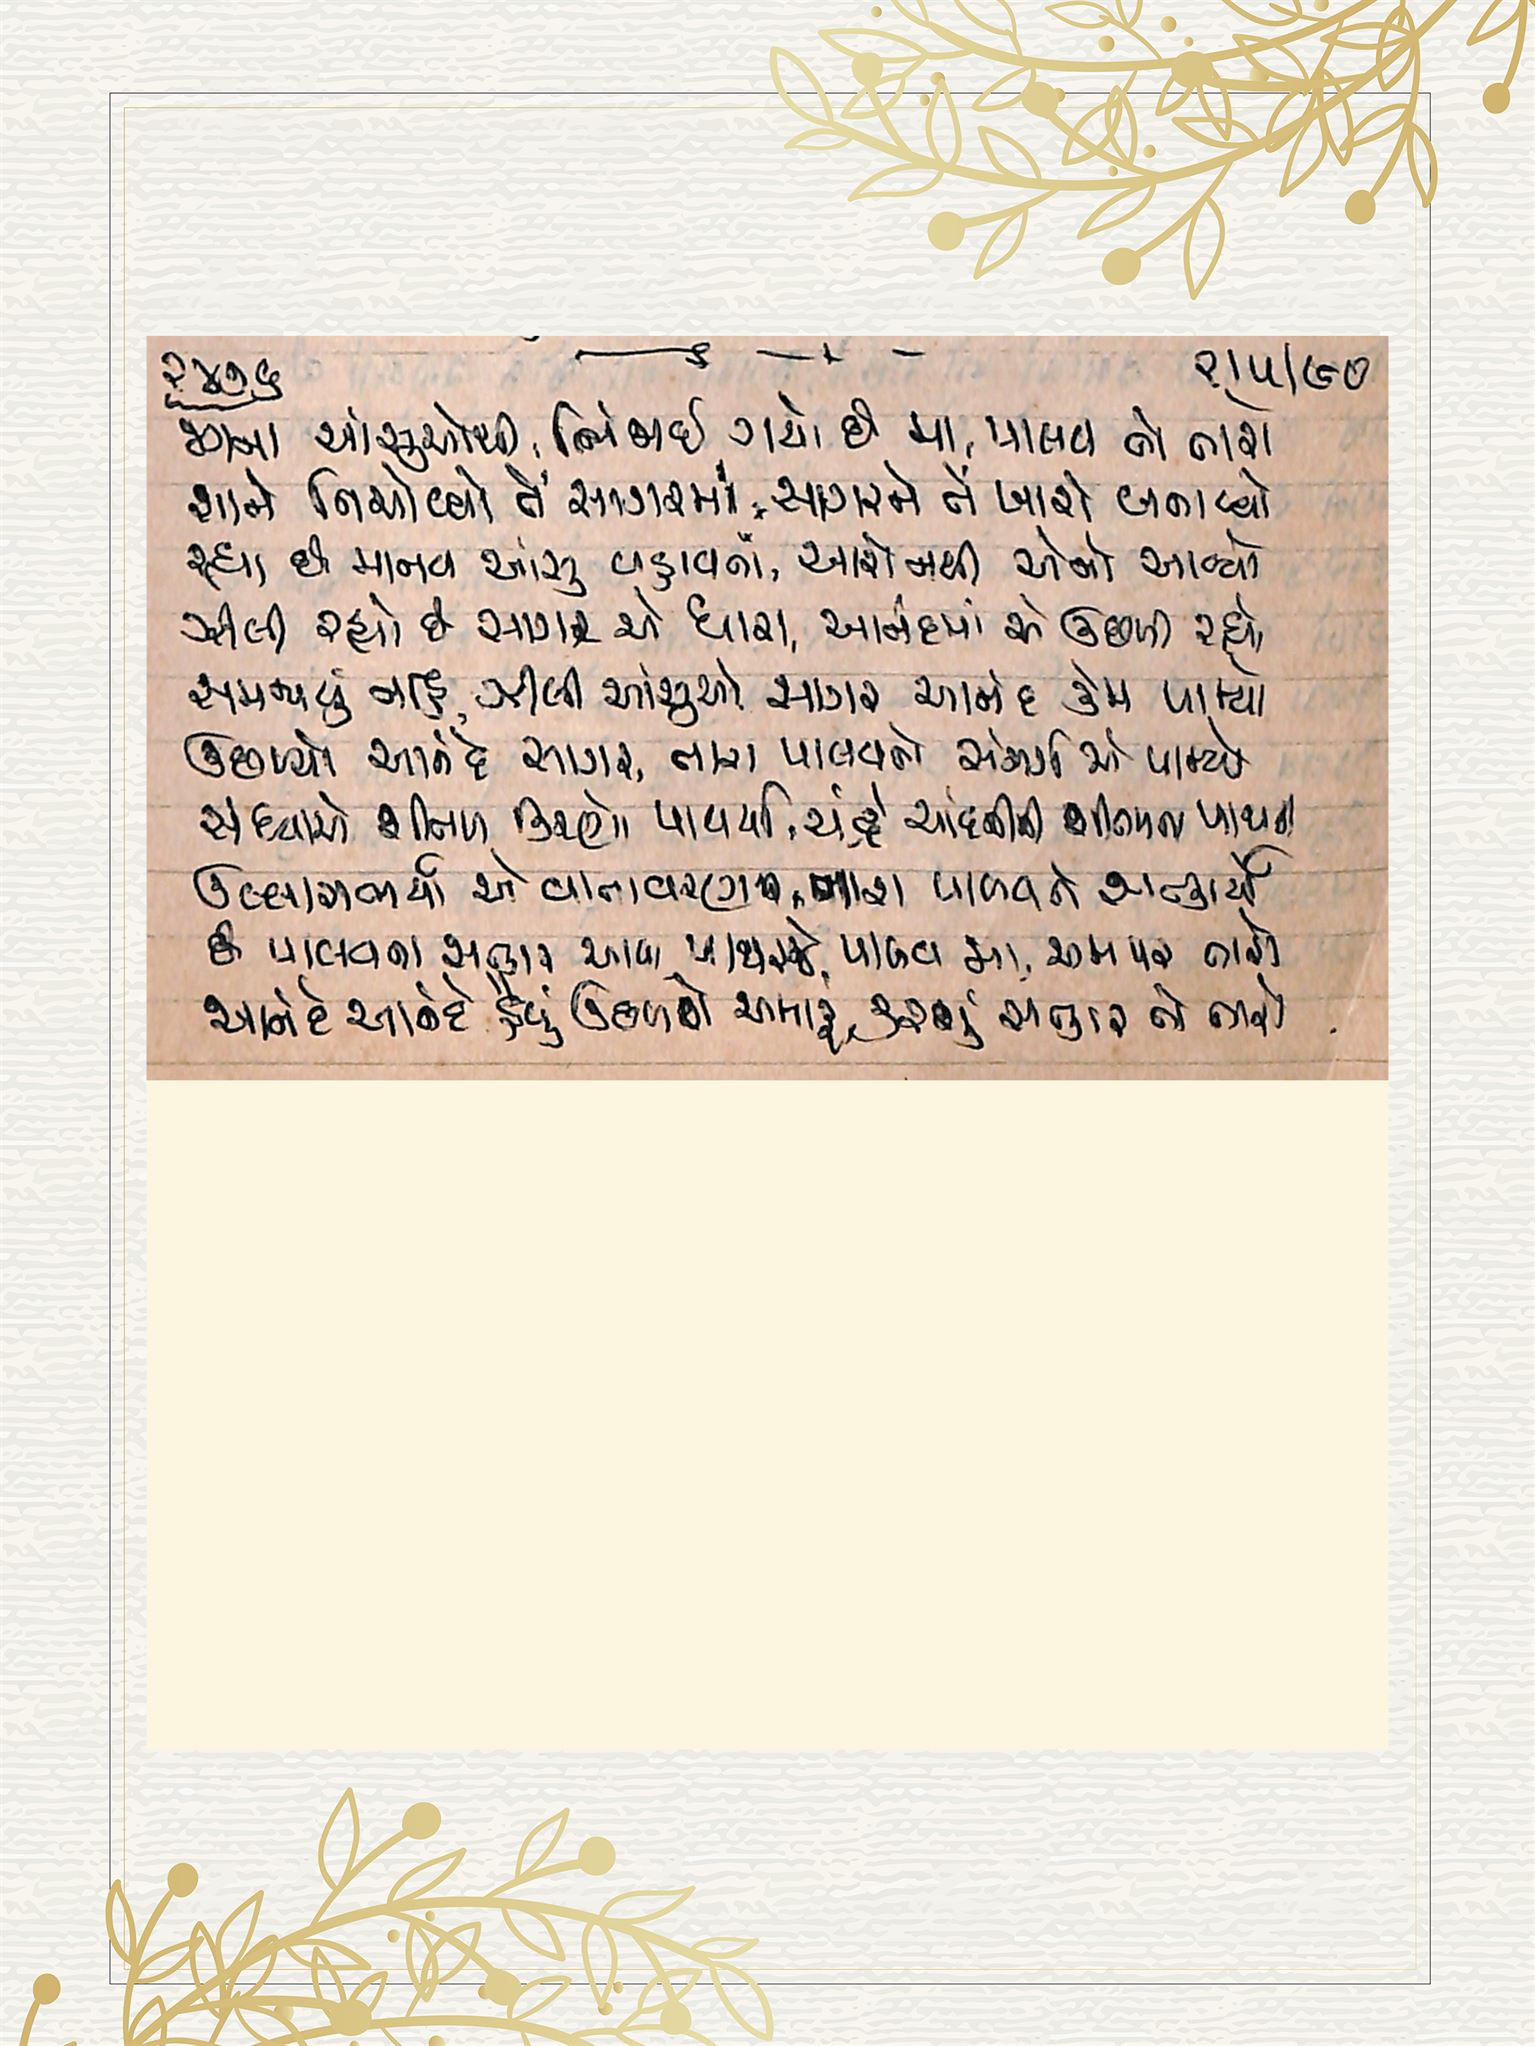 ૨૪૭૬ ૨/૫/૯૦
જગના આંસુઓથી, ભિંજાઈ ગયો છે મા, પાલવ તો તારો
શાને નિચોવ્યો તેં સાગરમાં, સાગરને તેં ખારો બનાવ્યો
રહ્યા છે માનવ આંસુ વહાવતાં, આરો નથી એનો આવ્યો
ઝીલી રહ્યો છે સાગર એ ધારા, આનંદમાં એ ઉછળી રહ્યો
સમજાયું નહિ, ઝીલી આંસુઓ સાગર આનંદ કેમ પામ્યો
ઉછળ્યો આનંદે સાગર, તારા પાલવનો સંસર્ગ એ પામ્યો
સંધ્યાએ શીતળ કિરણો પાથર્યા, ચંદ્રે ચાંદનીની શીતળતા પાથરી
ઉલ્લાસભર્યા એ વાતાવરણે, તારા પાલવને શણગાર્યો
છે પાલવના અણસાર આવા પાથરજે, પાલવ મા, અમ પર તારો
આનંદે આનંદે હૈયું ઉછળશે અમારું, કરશું સત્કાર તો તારો